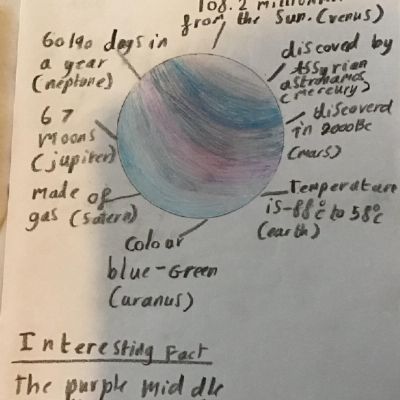 108.2 million
from the Sun. (venus)
60190 days in
a year
(neptone)
67
moons
(jupiter)
made of
gas (Satern)
colour
blue-Green
(uranus)
discoved by
Assyrian
astronamos
(mercury)
discoverd
in 2000BC
(mars)
Temperature
is -88°c to 58°c
(earth)
Interesting Fact
The purple middle